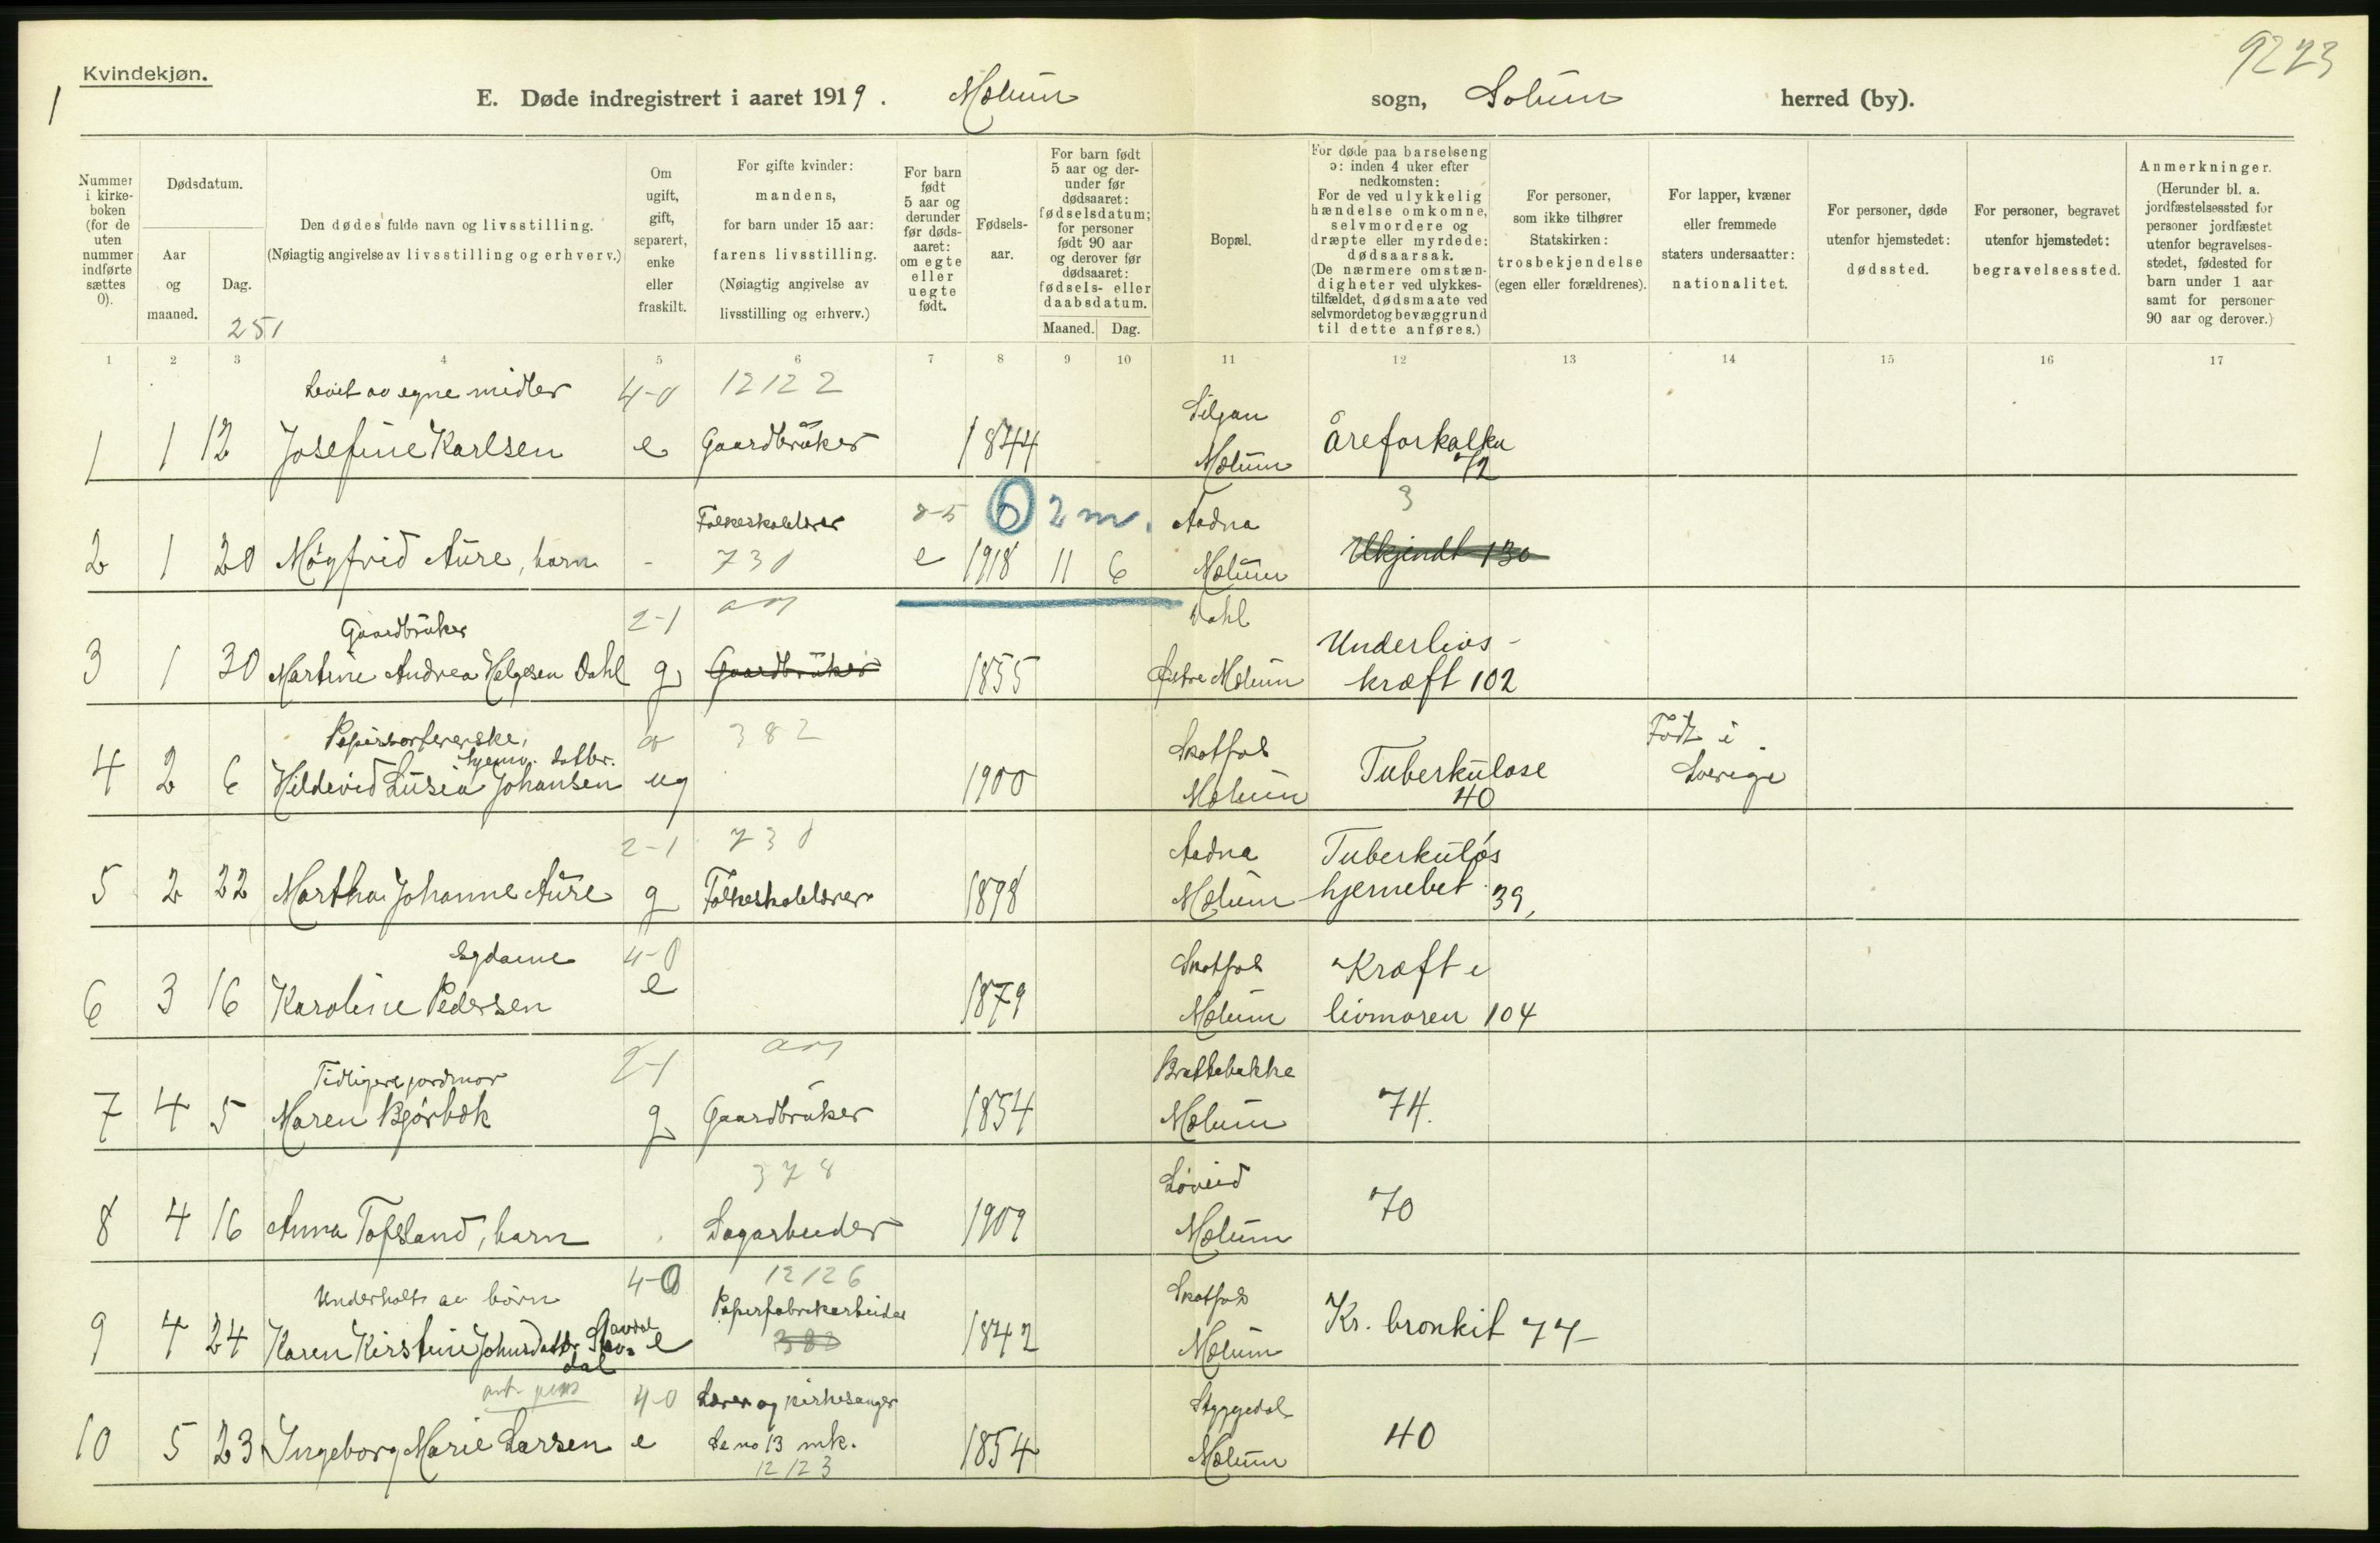 Kvindekjøn.
9223
1
E. Døde indregistrert i aaret 1919. Mælum sogn, Solum herred (by).
Nummer i kirkeboken (for de uten nummer indførte sættes 0).
Dødsdatum.
Aar og maaned.
Dag.
251
Den dødes fulde navn og livsstilling.
(Nøiagtig angivelse av livsstilling og erhverv.)
Om ugift, gift, separert, enke eller fraskilt.
For gifte kvinder: mandens, for barn under 15 aar: farens livsstilling. (Nøiagtig angivelse av livsstilling og erhverv.)
For barn født 5 aar og derunder før dødsaaret: om egte eller uegte født.
Fødselsaar.
For barn født 5 aar og derunder før dødsaaret: fødselsdatum; for personer født 90 aar og derover før dødsaaret: fødsels- eller daabsdatum.
Maaned. Dag.
Bopæl.
For døde paa barselseng ɔ: inden 4 uker efter nedkomsten: For de ved ulykkelig hændelse omkomne, selvmordere og dræpte eller myrdede: dødsaarsak. (De nærmere omstændigheter ved ulykkestilfældet, dødsmaate ved selvmordet og bevæggrund til dette anføres.)
For personer, som ikke tilhører Statskirken: trosbekjendelse (egen eller forældrenes).
For lapper, kvæner eller fremmede staters undersaatter: nationalitet.
For personer, døde utenfor hjemstedet: dødssted.
For personer, begravet utenfor hjemstedet: begravelsessted.
Anmerkninger. (Herunder bl. a. jordfæstelsessted for personer jordfæstet utenfor begravelsesstedet, fødested for barn under 1 aar samt for personer 90 aar og derover.)
1 2 3 4 5 6 7 8 9 10 11 12 13 14 15 16 17
Levet av egne midler 4-0 12122 Siljan
1 1 12 Josefine Karlsen e Gaardbruker 1844 Mælum Åreforkalkn 72
Folkeskolelærer 6 2 m. Aadna 3
2 1 20 Møyfrid Aure, barn - 730 e 1918 11 6 Mælum Ukjendt 130
Gaardbruker 2-1 Dahl Underlivs-
3 1 30 Martine Andrea Helgesen Dahl g Gaardbruker 1855 Østre Mælum kræft 102
Papirsortererske, hjemv. datter. 382 Skotfos Født i
4 2 6 Hildevid Lusia Johansen ug 1900 Mælum Tuberkulose 40 Sverige
2-1 730 Aadna Tuberkuløs
5 2 22 Martha Johanne Aure g Folkeskolelærer 1898 Mælum hjernebet. 39,
Sydame 4-0 Skotfos Kræft i
6 3 16 Karoline Pedersen e 1879 Mælum livmoren 104
Tidligere jordmor 2-1 Brattebakke
7 4 5 Maren Bjørbæk g Gaardbruker 1854 Mælum 74.
378 Løveid
8 4 16 Anna Tofsland, barn Sagarbeider 1909 Mælum 70
Underholdt av børn 4-0 12126 Papirfabrikarbeider Skotfos
9 4 24 Karen Kirstine Johnsdatter Stavdal e 388 1842 Mælum Kr. bronkit 77
4-0 Lærer og kirkesanger Styggedal
10 5 23 Ingeborg Marie Larsen e Se no 13 mk. 1854 Mælum 40
12123